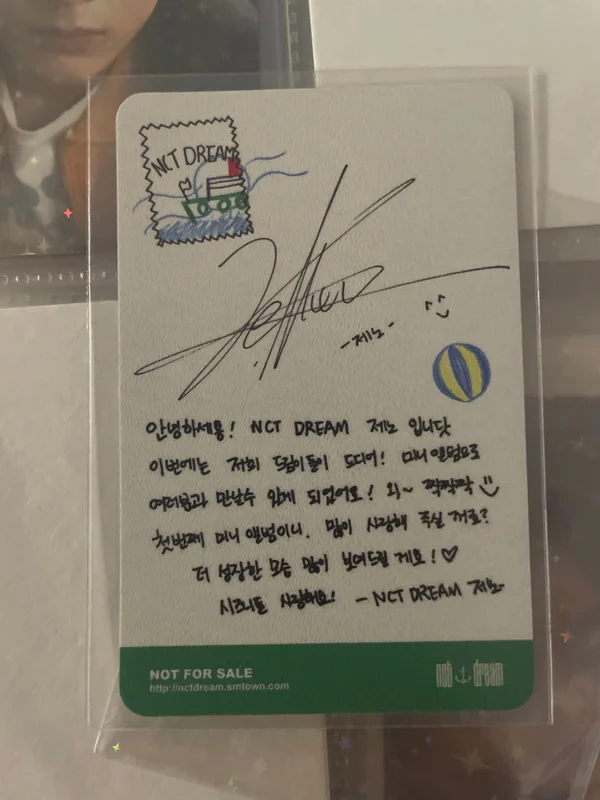 NCT DREAM
-제노-
안녕하세용! NCT DREAM 제노 입니닷
이번에는 저희 드림이들이 드디어! 미니앨범으로
여러분과 만날수 있게 되었어요! 와~ 짝짝짝
첫번째 미니 앨범이니. 많이 사랑해 주실 거죠?
더 성장한 모습 많이 보여드릴 게요!♡
시즈니들 사랑해요! - NCT DREAM 제노-
NOT FOR SALE
http://nctdream.smtown.com
nct dream